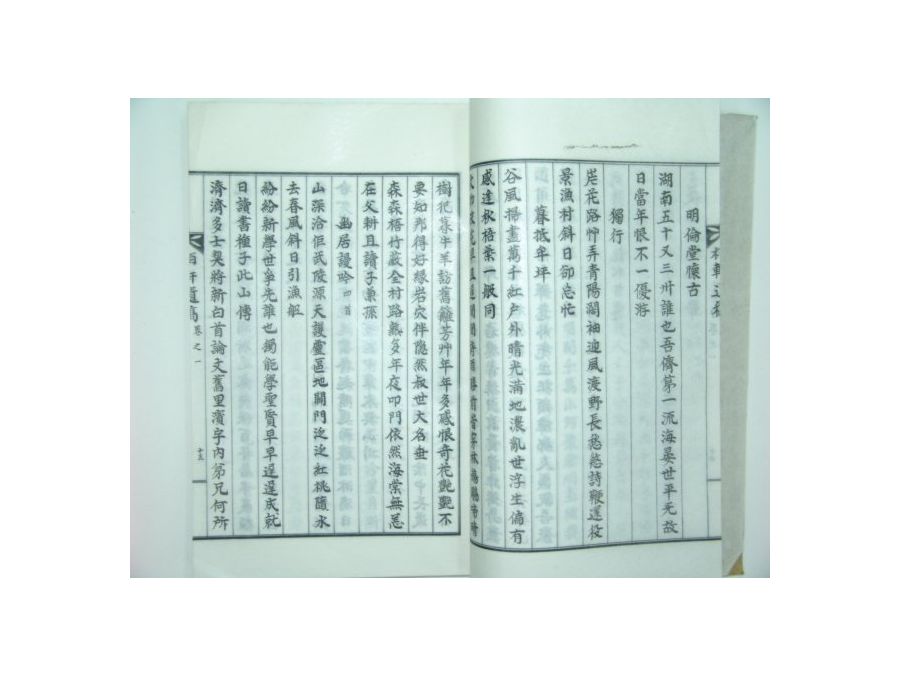 明倫堂懷古
湖南五十又三州誰也吾儕第一流海晏世平无故
日當年恨不一優游
獨行
岸花路艸弄青陽濶袖迎風渡野長愁愁詩鞭遅投
景漁村斜日却忘忙
暮抵牟坪
谷風揚盡萬千紅户外晴光滿地濃亂世浮生偏有
感逢秋梧葉一般同
樹花暮牛羊訪舊籬芳艸年年多感恨奇花艶艶不
要如那得好緣岩穴伴隐然叔世大名垂
森森梧竹蔽全村路熟多年夜叩門依然海棠無恙
在父耕且讀子兼孫
幽居謾吟 四首
山深洽似武陵源天護靈區地開門泛泛紅桃隨水
去春風斜日引漁舩
紛紛新學世爭先誰也獨能學聖賢早早遅遅成就
日讀書種子此山傳
濟濟多士昊將新白首論文舊里濱字內弟兄何所
遺稿 卷之一
十五